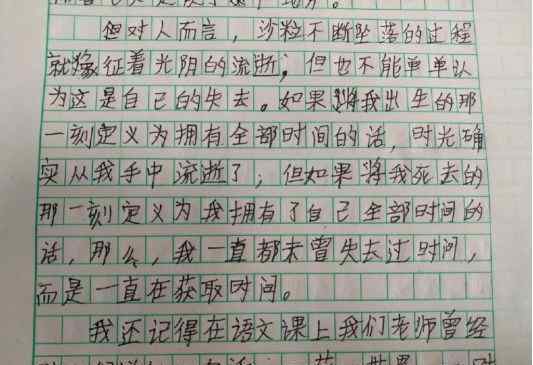 但对人而言，沙粒不断坠落的过程
就像征着光阴的流逝；但也不能单单认
为这是自己的失去。如果将我出生的那
一刻定义为拥有全部时间的话，时光确
实从我手中流逝了；但如果将我死去的
那一刻定义为我拥有了自己全部时间的
话，那么，我一直都未曾失去过时间，
而是一直在获取时间。
我还记得在语文课上我们老师曾经